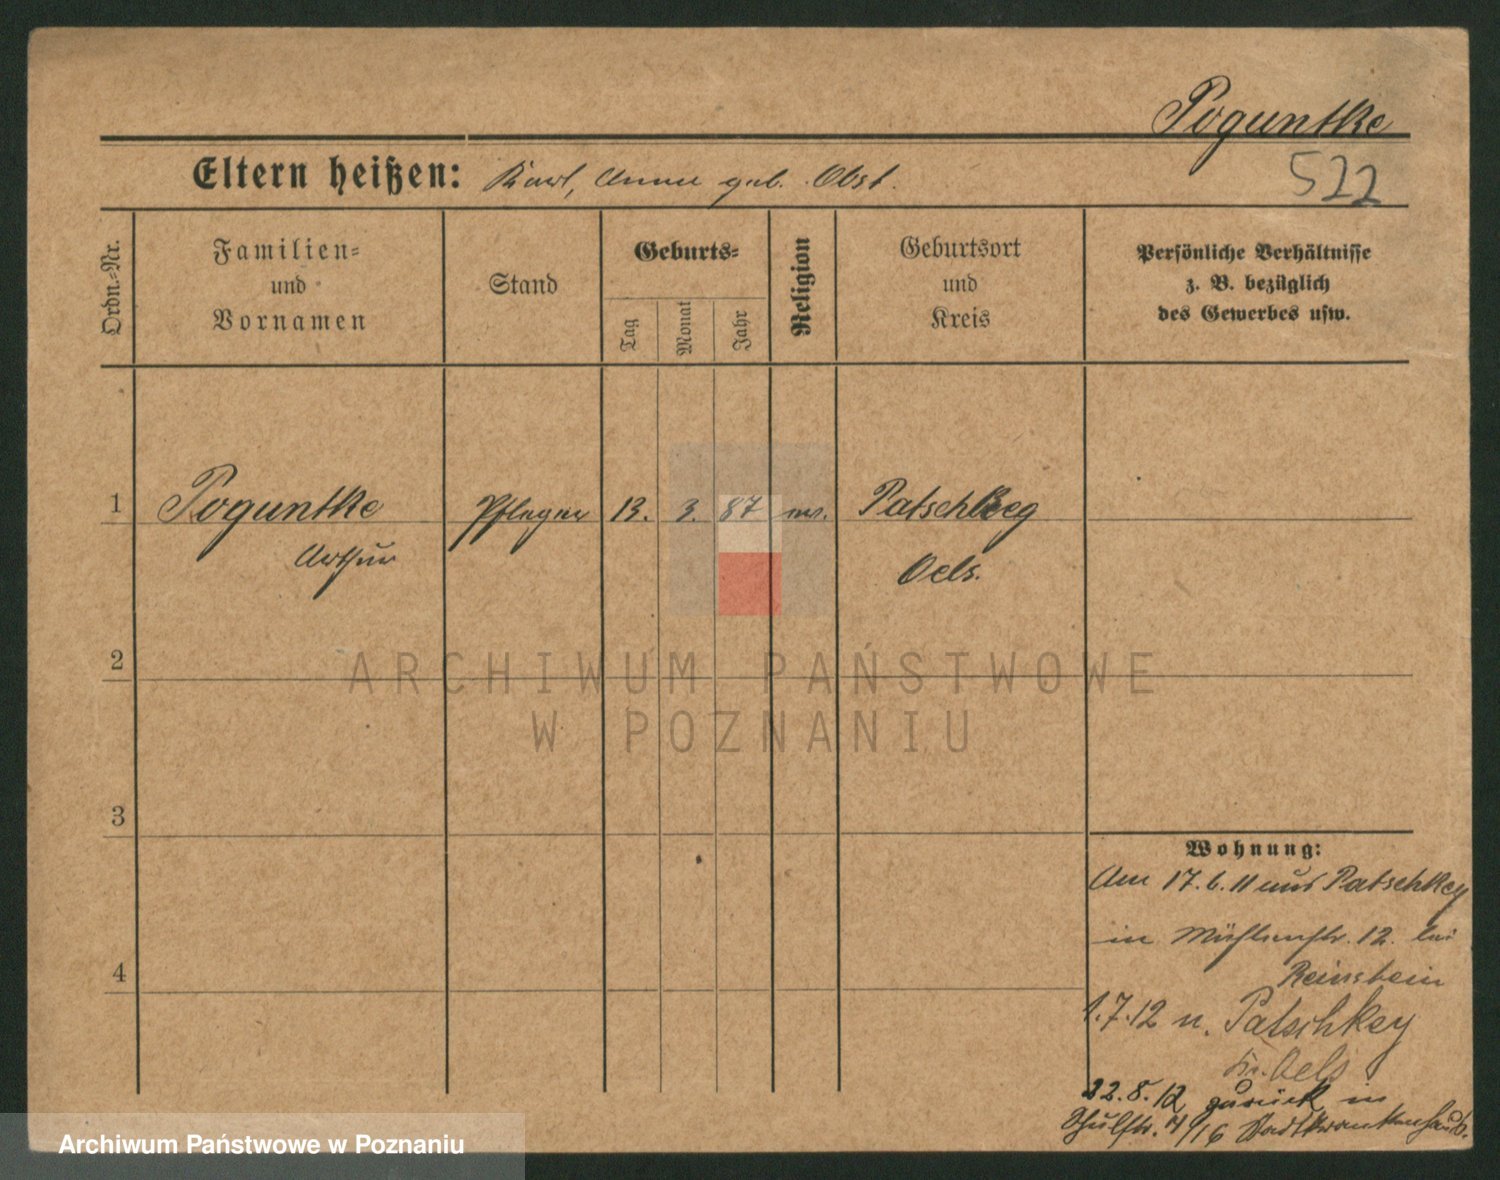 Poguntke
522
Eltern heißen: Karl, Anna geb. Obst.
Ordn.-Nr.
Familien-
und
Vornamen
Stand
Geburts-
Tag
Monat
Jahr
Religion
Geburtsort
und
Kreis
Persönliche Verhältnisse
z. B. bezüglich
des Gewerbes usw.
1 Poguntke Pfleger 13. 3. 87 Patschkeg
Arthur Oels.
2
3
4
Wohnung:
Am 17.6.11 aus Patschkey
in Mühlenstr. 12. bei
Reinstein
1.7.12 n. Patschkey
Kr. Oels
22.8.12 zurück in
Schulstr. Stadtkrankenhaus.
ARCHIWUM PAŃSTWOWE
W POZNANIU
Archiwum Państwowe w Poznaniu